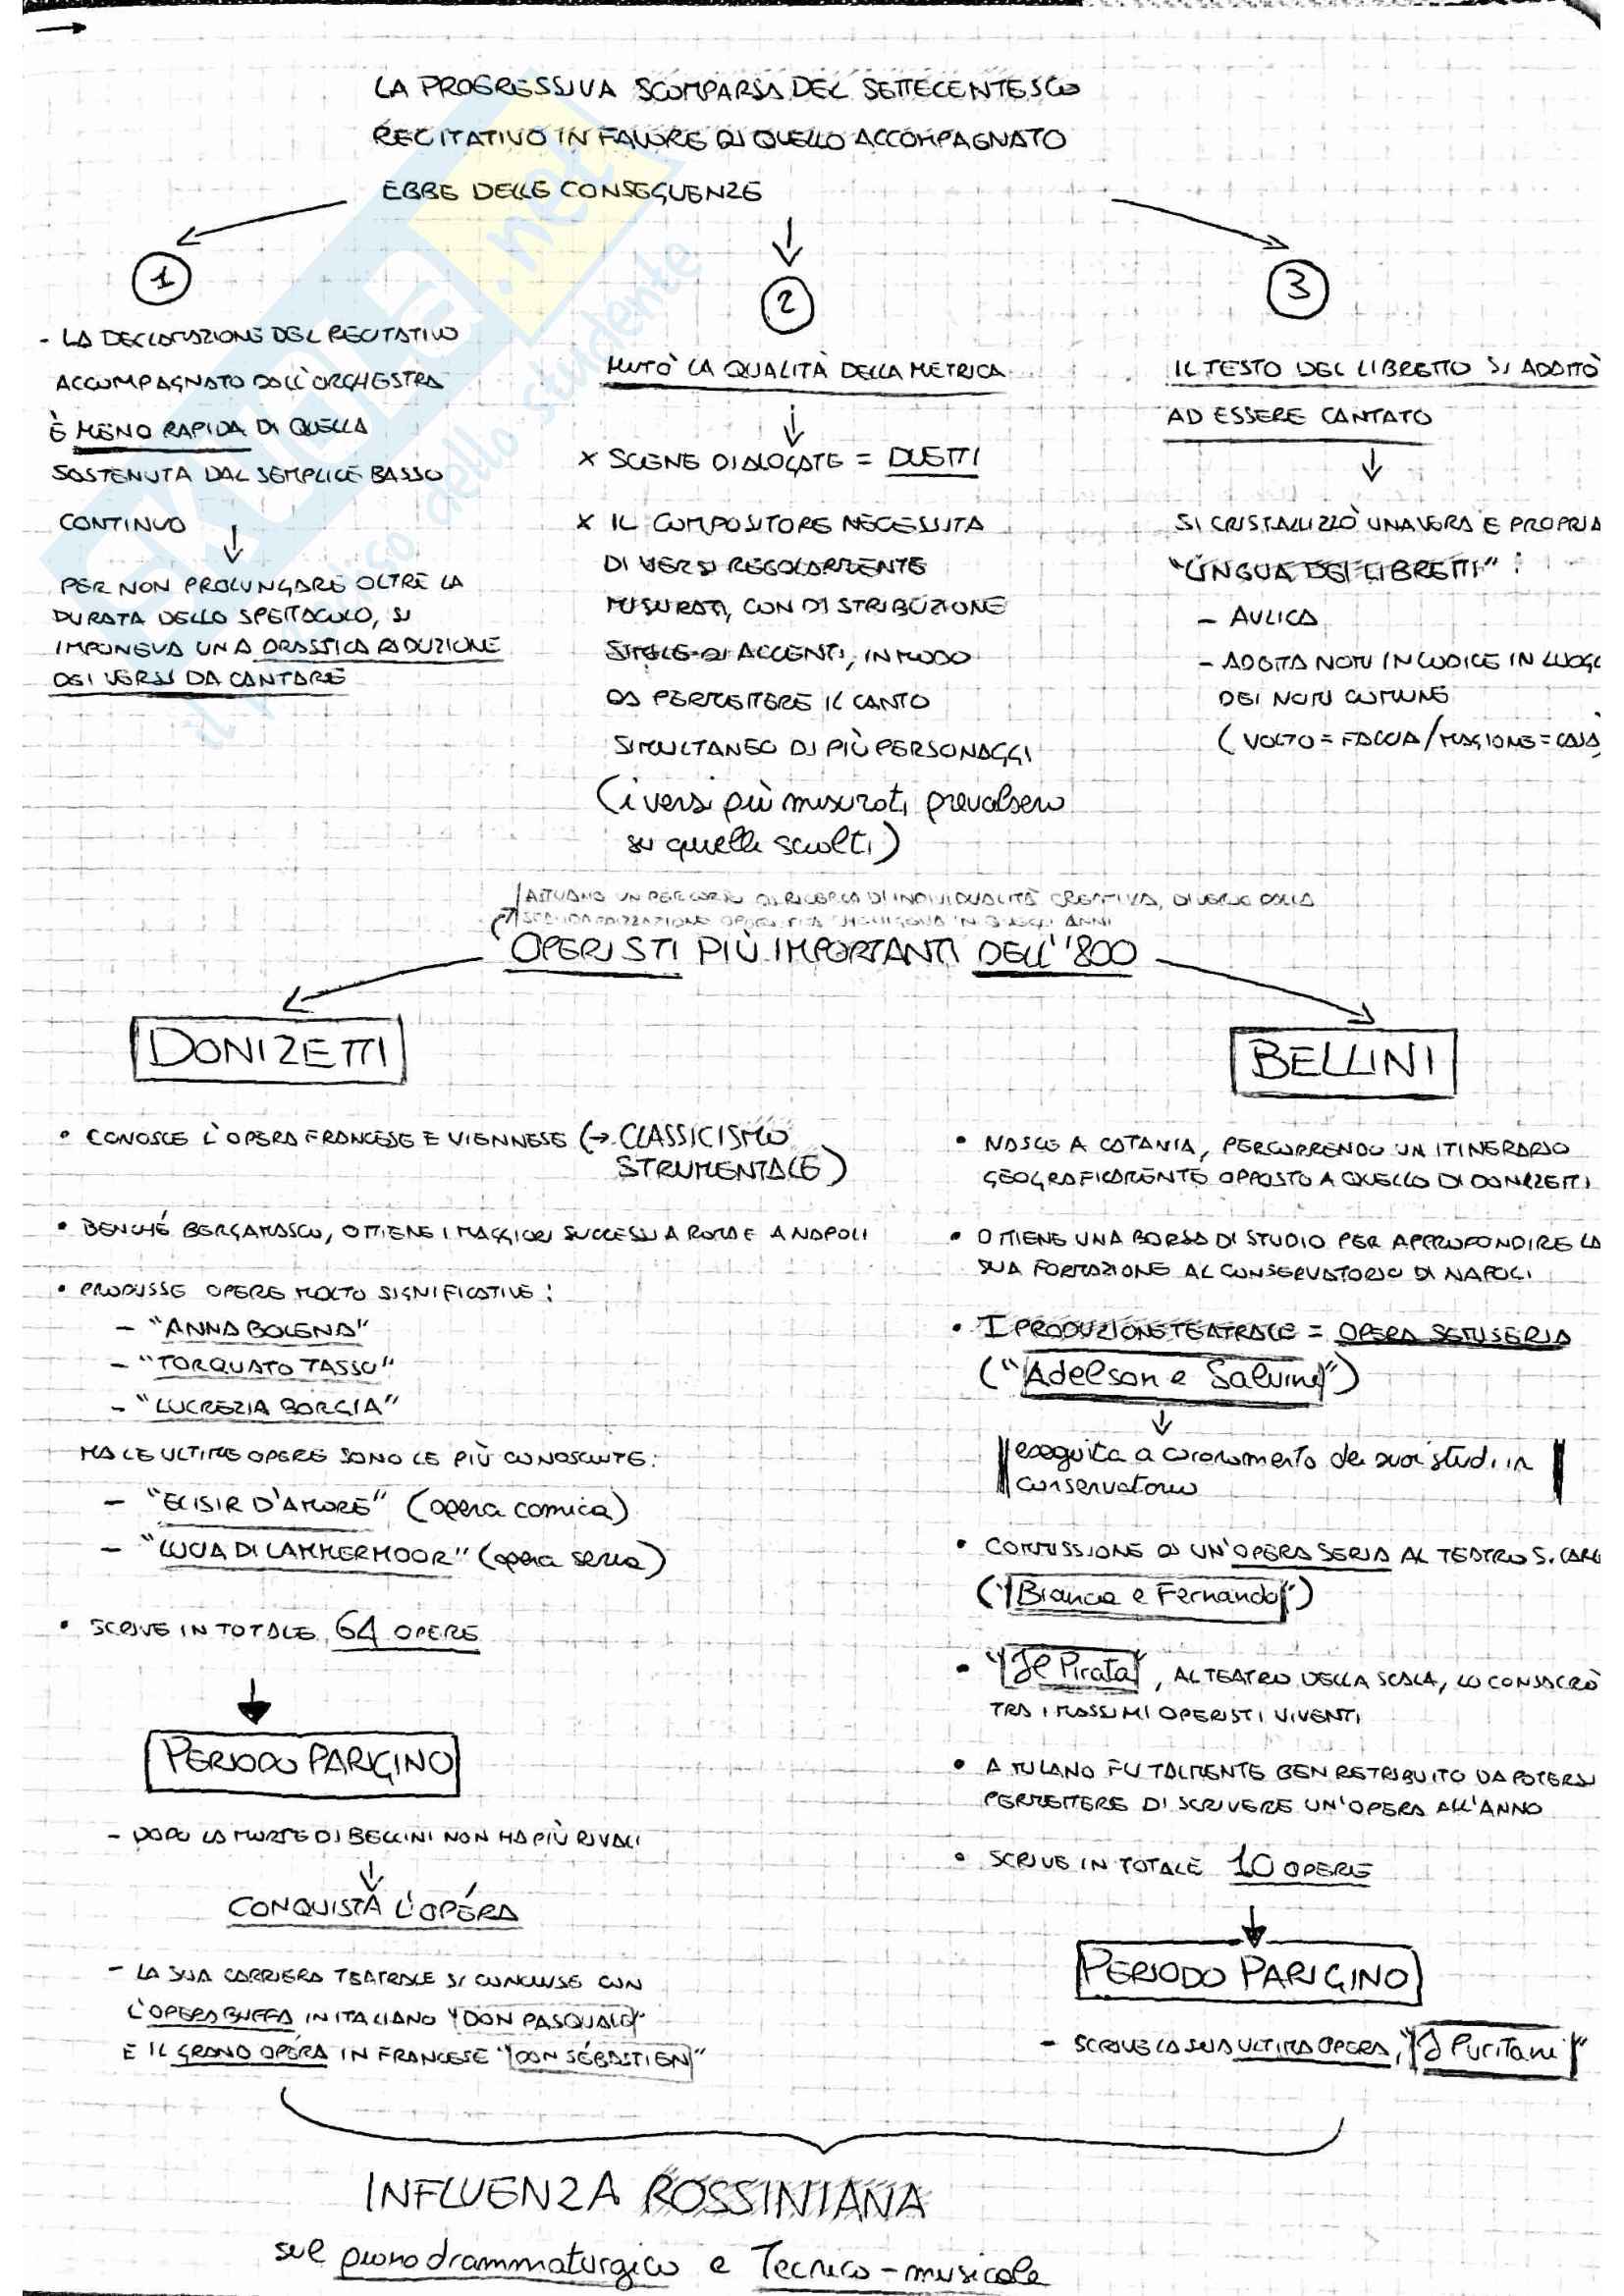 LA PROGRESSIVA SCOMPARSA DEL SETTECENTESCO
RECITATIVO IN FAVORE DI QUELLO ACCOMPAGNATO
EBBE DELLE CONSEGUENZE
1
- LA DECLAMAZIONE DEL RECITATIVO
ACCOMPAGNATO DALL'ORCHESTRA
È MENO RAPIDA DI QUELLA
SOSTENUTA DAL SEMPLICE BASSO
CONTINUO
PER NON PROLUNGARE OLTRE LA
DURATA DELLO SPETTACOLO, SI
IMPONEVA UNA DRASTICA RIDUZIONE
DEI VERSI DA CANTARE
2
MUTÒ LA QUALITÀ DELLA METRICA
x SCENE DIALOGATE = DUETTI
x IL COMPOSITORE NECESSITA
DI VERSI REGOLARMENTE
MISURATI, CON DISTRIBUZIONE
SIMILE DI ACCENTI, IN MODO
DA PERMETTERE IL CANTO
SIMULTANEO DI PIÙ PERSONAGGI
(i versi più misurati prevalsero
su quelli sciolti)
3
IL TESTO DEL LIBRETTO SI ADATTÒ
AD ESSERE CANTATO
SI CRISTALLIZZÒ UNA VERA E PROPRIA
"LINGUA DEI LIBRETTI":
- AULICA
- ADOTTA NOMI IN CODICE IN LUOGO
DEI NOMI COMUNE
(VOLTO = FACCIA / MAGIONE = CASA)
ATTUANO UN PERCORSO DI RICERCA DI INDIVIDUALITÀ CREATIVA, DIVERSO DALLA
IN QUEGLI ANNI
OPERISTI PIÙ IMPORTANTI DELL'800
DONIZETTI
• CONOSCE L'OPERA FRANCESE E VIENNESE (→ CLASSICISMO
STRUMENTALE)
• BENCHÉ BERGAMASCO, OTTIENE I MAGGIORI SUCCESSI A ROMA E A NAPOLI
• PRODUSSE OPERE MOLTO SIGNIFICATIVE:
- "ANNA BOLENA"
- "TORQUATO TASSO"
- "LUCREZIA BORGIA"
MA LE ULTIME OPERE SONO LE PIÙ CONOSCIUTE:
- "ELISIR D'AMORE" (opera comica)
- "LUCIA DI LAMMERMOOR" (opera seria)
• SCRIVE IN TOTALE 64 OPERE
PERIODO PARIGINO
- DOPO LA MORTE DI BELLINI NON HA PIÙ RIVALI
CONQUISTA L'OPÉRA
- LA SUA CARRIERA TEATRALE SI CONCLUSE CON
L'OPERA BUFFA IN ITALIANO "DON PASQUALE"
E IL GRAND OPÉRA IN FRANCESE "DON SÉBASTIEN"
BELLINI
• NASCE A CATANIA, PERCORRENDO UN ITINERARIO
GEOGRAFICAMENTE OPPOSTO A QUELLO DI DONIZETTI
• OTTIENE UNA BORSA DI STUDIO PER APPROFONDIRE LA
SUA FORMAZIONE AL CONSERVATORIO DI NAPOLI
• I PRODUZIONE TEATRALE = OPERA SEMISERIA
("Adelson e Salvini")
eseguita a coronamento dei suoi studi in
conservatorio
• COMMISSIONE DI UN'OPERA SERIA AL TEATRO S. CARL
("Bianca e Fernando")
• "Il Pirata", AL TEATRO DELLA SCALA, LO CONSACRÒ
TRA I MASSIMI OPERISTI VIVENTI
• A MILANO FU TALMENTE BEN RETRIBUITO DA POTERSI
PERMETTERE DI SCRIVERE UN'OPERA ALL'ANNO
• SCRIVE IN TOTALE 10 OPERE
PERIODO PARIGINO
- SCRIVE LA SUA ULTIMA OPERA, "I Puritani"
INFLUENZA ROSSINIANA
sul piano drammaturgico e Tecnico-musicale